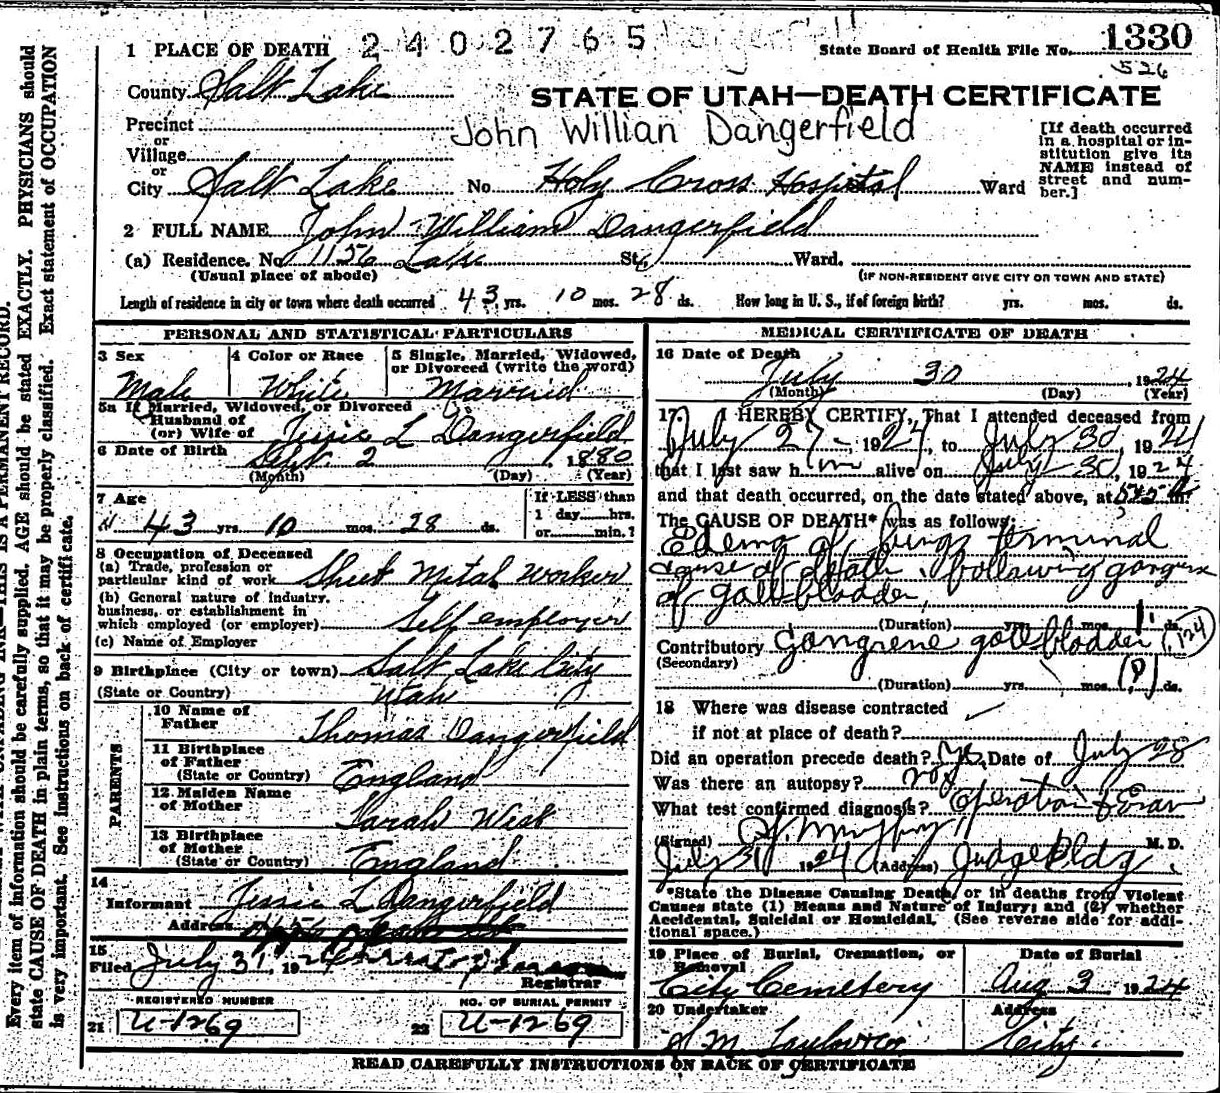 1 PLACE OF DEATH 2402765
State Board of Health File No. 1330
526
County Salt Lake
STATE OF UTAH—DEATH CERTIFICATE
Precinct
John Willian Dangerfield
or
Village
or
City Salt Lake No. Holy Cross Hospital Ward
[If death occurred
in a hospital or in-
stitution give its
NAME instead of
street and num-
ber.]
2 FULL NAME John William Dangerfield
(a) Residence. No. 1156 Lake St. Ward.
(Usual place of abode) (IF NON-RESIDENT GIVE CITY OR TOWN AND STATE)
Length of residence in city or town where death occurred 43 yrs. 10 mos. 28 ds. How long in U. S., if of foreign birth? yrs. mos. ds.
PERSONAL AND STATISTICAL PARTICULARS
3 Sex 4 Color or Race 5 Single, Married, Widowed,
or Divorced (write the word)
Male White Married
5a If Married, Widowed, or Divorced
Husband of
(or) Wife of Jessie L Dangerfield
6 Date of Birth Sept. 2 1880
(Month) (Day) (Year)
7 Age If LESS than
1 day hrs.
43 yrs. 10 mos. 28 ds. or min.?
8 Occupation of Deceased
(a) Trade, profession or
particular kind of work Sheet Metal Worker
(b) General nature of industry,
business, or establishment in
which employed (or employer) Self employer
(c) Name of Employer
9 Birthplace (City or town) Salt Lake City
(State or Country) Utah
PARENTS
10 Name of
Father Thomas Dangerfield
11 Birthplace
of Father
(State or Country) England
12 Maiden Name
of Mother Sarah
13 Birthplace
of Mother
(State or Country) England
14
Informant Jessie L Dangerfield
Address
15
Filed July 31, 1924
Registrar
REGISTERED NUMBER NO. OF BURIAL PERMIT
21 U-1269 22 U-1269
MEDICAL CERTIFICATE OF DEATH
16 Date of Death
July 30, 1924
(Month) (Day) (Year)
17. I HEREBY CERTIFY, That I attended deceased from
July 27, 1924, to July 30, 1924
that I last saw him alive on July 30, 1924
and that death occurred, on the date stated above, at 545 m.
The CAUSE OF DEATH* was as follows:
Edema of lungs terminal
cause of death following gangrene
of gallbladder
(Duration) yrs. mos. 1 ds.
Contributory Gangrene gall bladder (124)
(Secondary)
(Duration) yrs. mos. (8) ds.
18 Where was disease contracted
if not at place of death?
Did an operation precede death? Yes Date of July 28
Was there an autopsy? no
What test confirmed diagnosis? Operation & Exam
(Signed) M. D.
July 31 1924 (Address) Judge Bldg
*State the Disease Causing Death, or in deaths from Violent
Causes state (1) Means and Nature of Injury; and (2) whether
Accidental, Suicidal or Homicidal. (See reverse side for addi-
tional space.)
19 Place of Burial, Cremation, or
Removal Date of Burial
City Cemetery Aug 3 1924
20 Undertaker Address
S M Taylor & Co City
READ CAREFULLY INSTRUCTIONS ON BACK OF CERTIFICATE
Every item of information should be carefully supplied. AGE should be stated EXACTLY. PHYSICIANS should
state CAUSE OF DEATH in plain terms, so that it may be properly classified. Exact statement of OCCUPATION
is very important. See instructions on back of certificate.